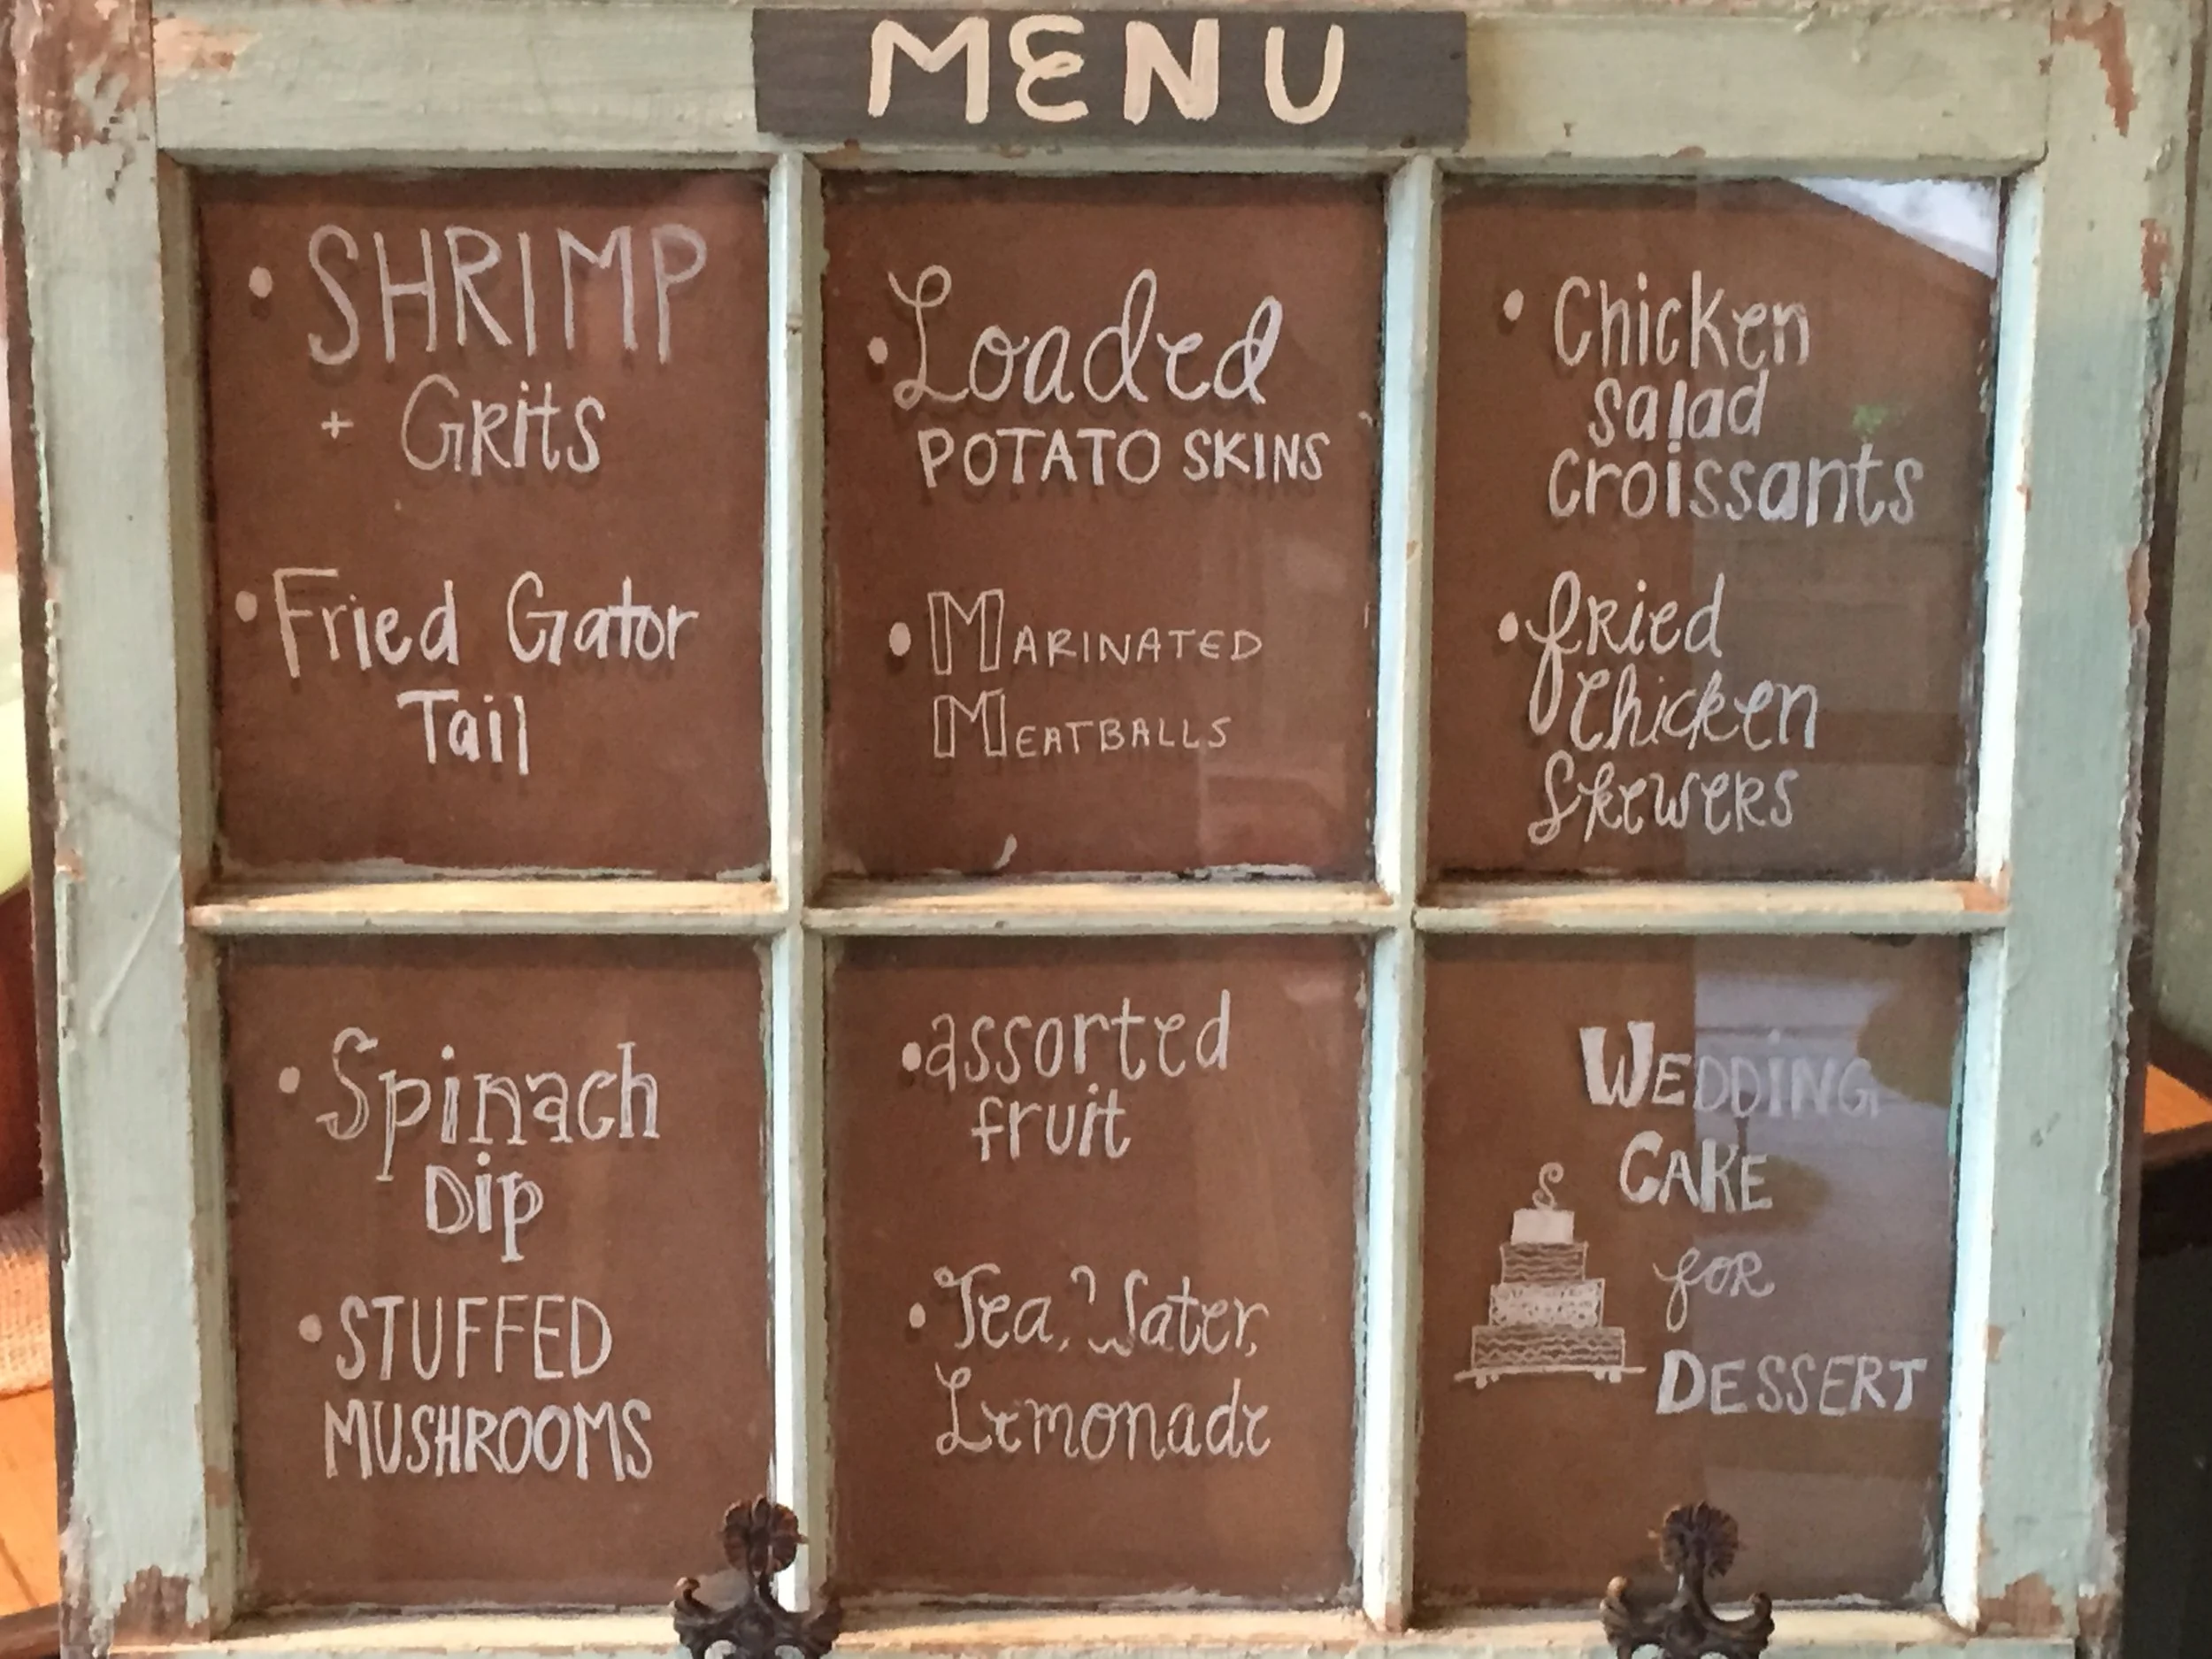 MENU
• SHRIMP
+ Grits
• Fried Gator
Tail
• Loaded
POTATO SKINS
• MARINATED
MEATBALLS
• Chicken
salad
croissants
• fried
Chicken
Skewers
• Spinach
Dip
• STUFFED
MUSHROOMS
• assorted
fruit
• Tea, Water,
Lemonade
WEDDING
CAKE
for
DESSERT